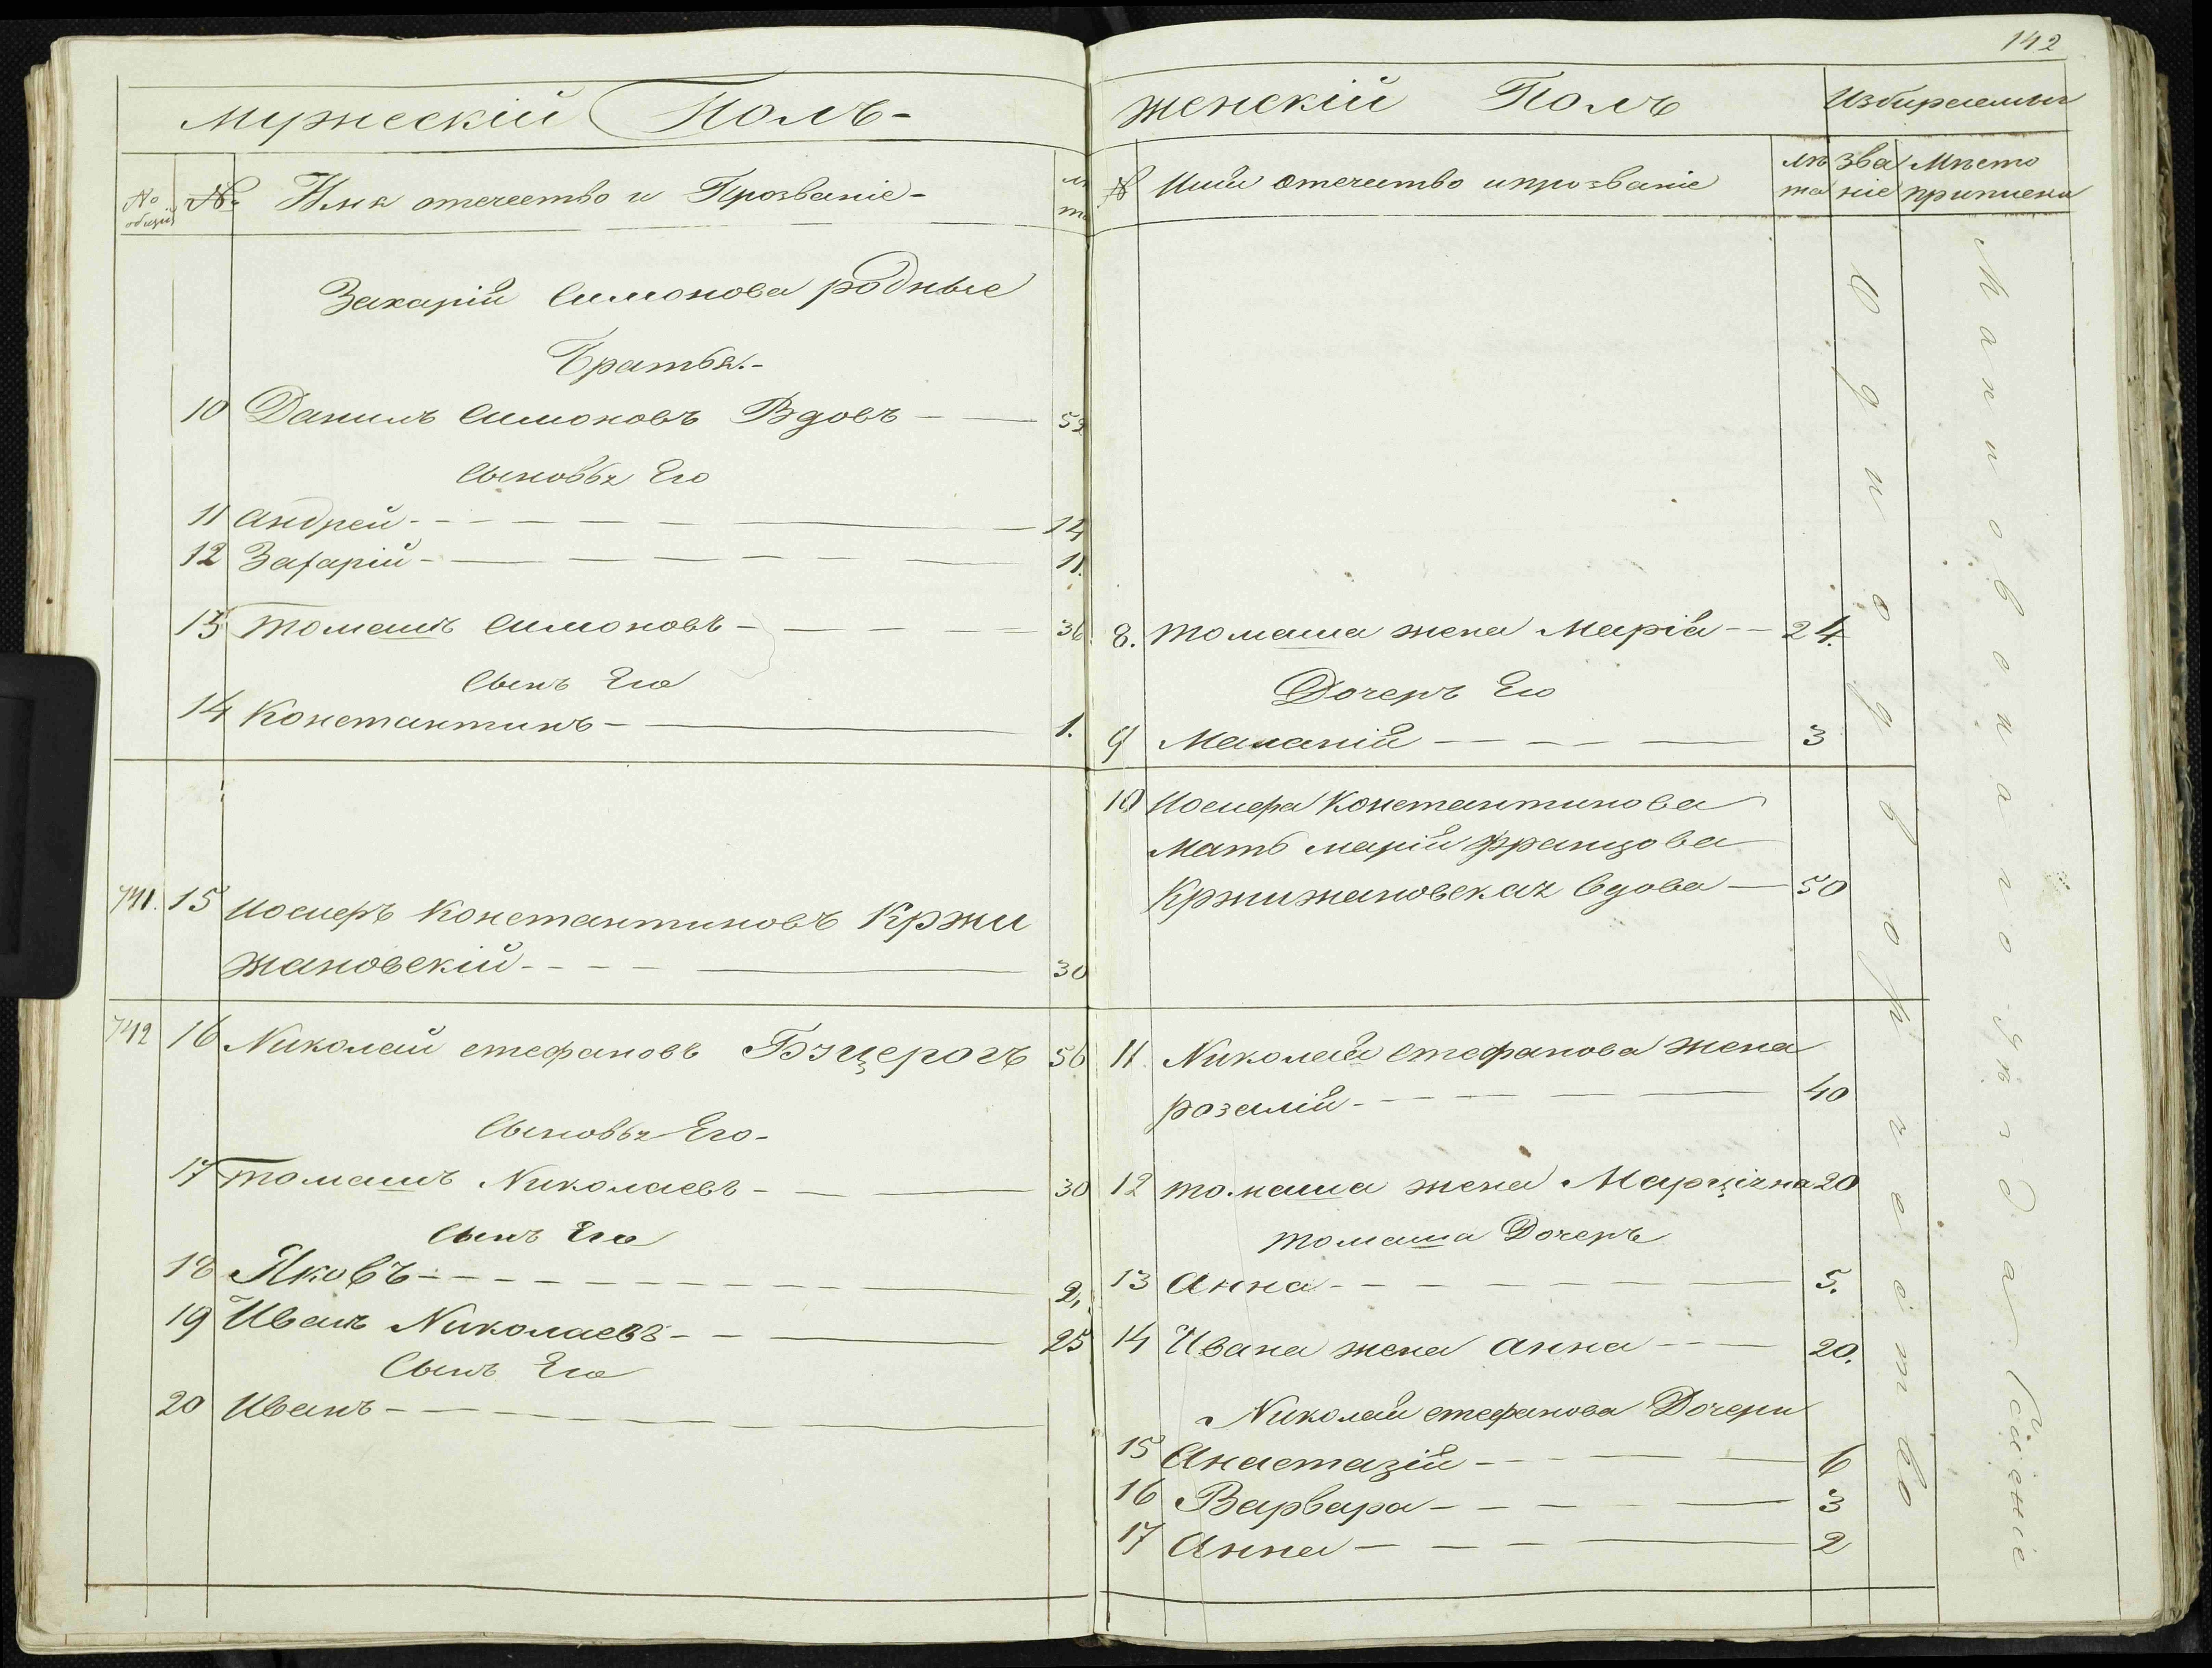 142
Мужескій Полъ-
No общій
№ Имя отечество и Прозваніе-
лѣта
Захарій Симонова родные
Братья.-
10 Данилъ Симоновъ Вдовъ - 52
Сыновья Его
11 Андрей - 14
12 Захарій - 11.
13 Томашъ Симоновъ - 36
Сынъ Его
14 Константинъ - 1.
741. 15 Иосифъ Константиновъ Кржи
жановскій - 30
742 16 Николай Стефановъ 56
Сыновья Его-
17 Томашъ Николаевъ - 30
Сынъ Его
18 Яковъ - 2,
19 Иванъ Николаевъ - 25
Сынъ Его
20 Иванъ -
Женскій Полъ
Избираемыя
№ Имя отечество и прозваніе
лѣта
званіе
Мѣсто приписки
8. Томаша жена Марія - 24.
Дочеръ Его
9 Маланій - 3
10 Иосифа Константинова
Мать Марій Францова
Кржижановская Вдова - 50
11 Николай Стефанова жена
Розалій - 40
12 Томаша жена Марціяна 20
Томаша Дочеръ
13 Анна - 5.
14 Ивана жена Анна - 20.
Николай Стефанова Дочери
15 Анастазій - 6
16 Варвара - 3
17 Анна - 2
Однодворчество